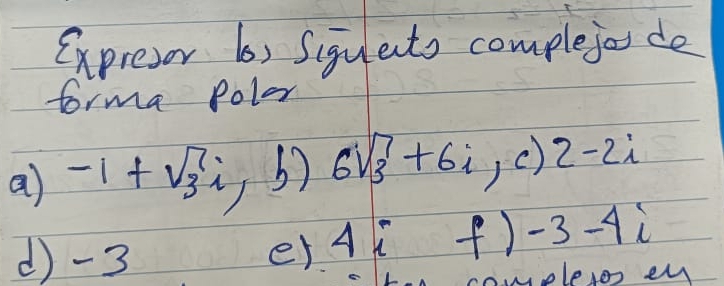 Expresar los siguients complejos de
forma Polar
a) -1 + √3 i, b) 6√3 + 6i, c) 2 - 2i
d) -3 e) 4i f) -3 - 4i
complejos en